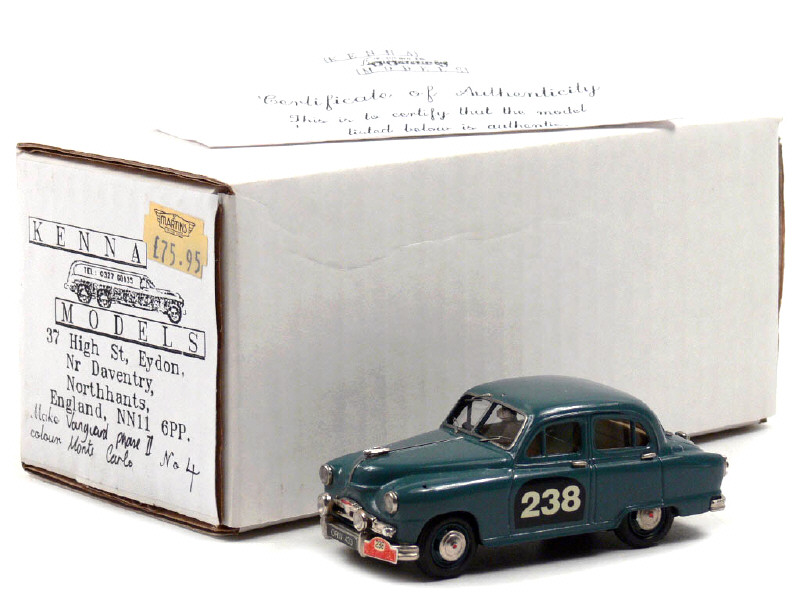 KENNA
MODELS
Certificate of Authenticity
This is to certify that the model
listed below is authentic.
MARTINS
£75.95
KENNA
TEL: 0327
MODELS
37 High St, Eydon,
Nr Daventry,
Northhants,
England, NN11 6PP.
Make Vanguard phase II
colour Monte Carlo No 4
238